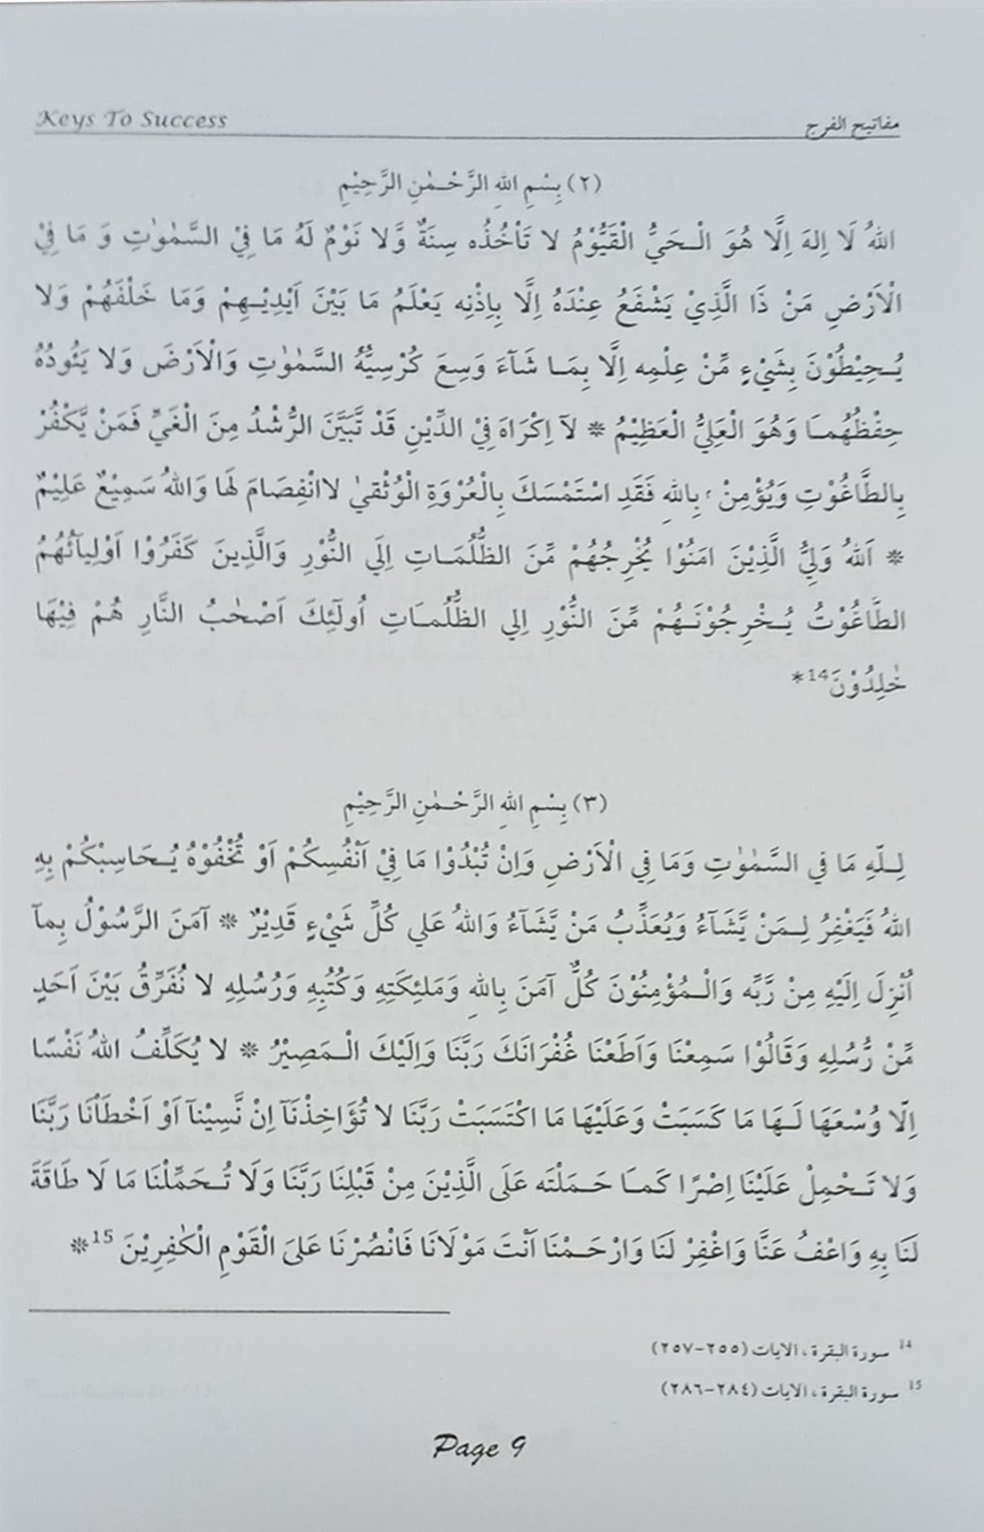 Keys To Success
مفاتيح الفرج
(٢) بِسْمِ اللهِ الرَّحْمٰنِ الرَّحِيْمِ
اللهُ لَا اِلهَ اِلَّا هُوَ الْحَيُّ الْقَيُّوْمُ لا تَاْخُذُه سِنَةٌ وَّلا نَوْمٌ لَهُ مَا فِيْ السَّمٰوٰتِ وَ مَا فِيْ
الْاَرْضِ مَنْ ذَا الَّذِيْ يَشْفَعُ عِنْدَهُ اِلَّا بِاِذْنِه يَعْلَمُ مَا بَيْنَ اَيْدِيْهِمْ وَمَا خَلْفَهُمْ وَلا
يُحِيْطُوْنَ بِشَيْءٍ مِّنْ عِلْمِه اِلَّا بِمَا شَآءَ وَسِعَ كُرْسِيُّهُ السَّمٰوٰتِ وَالْاَرْضَ وَلا يَئُودُهُ
حِفْظُهُمَا وَهُوَ الْعَلِيُّ الْعَظِيْمُ * لآ اِكْرَاهَ فِيْ الدِّيْنِ قَدْ تَّبَيَّنَ الرُّشْدُ مِنَ الْغَيِّ فَمَنْ يَّكْفُرْ
بِالطَّاغُوْتِ وَيُؤْمِنْ ۢ بِاللهِ فَقَدِ اسْتَمْسَكَ بِالْعُرْوَةِ الْوُثْقيٰ لاانْفِصَامَ لَهَا وَاللهُ سَمِيْعٌ عَلِيْمٌ
* اَللهُ وَلِيُّ الَّذِيْنَ امَنُوْا يُخْرِجُهُمْ مِّنَ الظُّلُمَاتِ اِلَي النُّوْرِ وَالَّذِينَ كَفَرُوْا اَوْلِيآئُهُمُ
الطَّاغُوْتُ يُخْرِجُوْنَهُمْ مِّنَ النُّوْرِ اِلي الظُّلُمَاتِ اُولٓئِكَ اَصْحٰبُ النَّارِ هُمْ فِيْهَا
خٰلِدُوْنَ14*
(٣) بِسْمِ اللهِ الرَّحْمٰنِ الرَّحِيْمِ
لِلّهِ مَا في السَّمٰوٰتِ وَمَا فِي الْاَرْضِ وَاِنْ تُبْدُوْا مَا فِيْ اَنْفُسِكُمْ اَوْ تُخْفُوْهُ يُحَاسِبْكُمْ بِهِ
اللهُ فَيَغْفِرُ لِمَنْ يَّشَآءُ وَيُعَذِّبُ مَنْ يَّشَآءُ وَاللهُ عَلي كُلِّ شَيْءٍ قَدِيْرٌ * آمَنَ الرَّسُوْلُ بِمآ
اُنْزِلَ اِلَيْهِ مِنْ رَّبِّه وَالْمُؤْمِنُوْنَ كُلٌّ آمَنَ بِاللهِ وَمَلئِكَتِهِ وَكُتُبِهِ وَرُسُلِهِ لا نُفَرِّقُ بَيْنَ اَحَدٍ
مِّنْ رُّسُلِهِ وَقَالُوْا سَمِعْنَا وَاَطَعْنَا غُفْرَانَكَ رَبَّنَا وَاِلَيْكَ الْمَصِيْرُ * لا يُكَلِّفُ اللهُ نَفْسًا
اِلّا وُسْعَهَا لَهَا مَا كَسَبَتْ وَعَلَيْهَا مَا اكْتَسَبَتْ رَبَّنَا لا تُؤَاخِذْنَآ اِنْ نَّسِيْنآ اَوْ اَخْطَاْنَا رَبَّنَا
وَلا تَحْمِلْ عَلَيْنَا اِصْرًا كَمَا حَمَلْتَه عَلَى الَّذِيْنَ مِنْ قَبْلِنَا رَبَّنَا وَلَا تُحَمِّلْنَا مَا لَا طَاقَةَ
لَنَا بِهِ وَاعْفُ عَنَّا وَاغْفِرْ لَنَا وَارْحَمْنَا اَنْتَ مَوْلَانَا فَانْصُرْنَا عَلىَ الْقَوْمِ الْكٰفِرِيْنَ 15*
14 سورة البقرة، الايات (٢٥٥-٢٥٧)
15 سورة البقرة، الايات (٢٨٤-٢٨٦)
Page 9